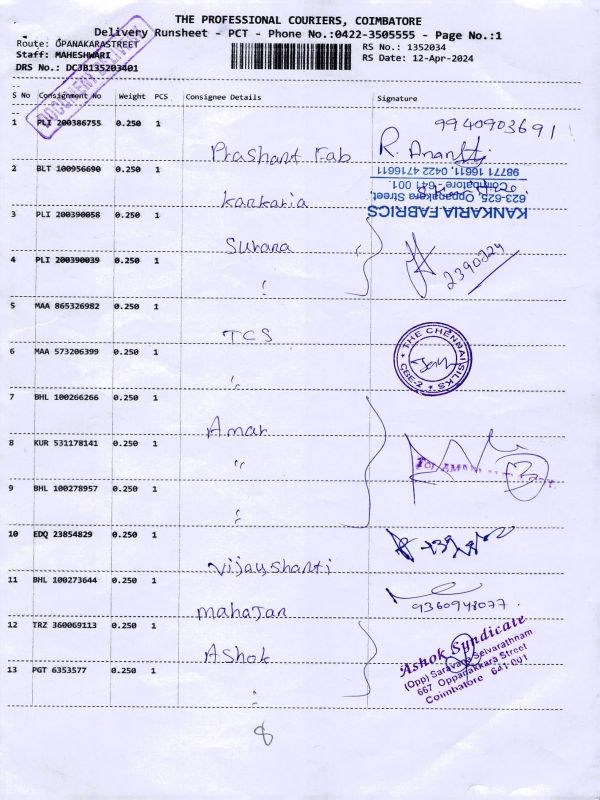 THE PROFESSIONAL COURIERS, COIMBATORE
Delivery Runsheet - PCT - Phone No.:0422-3505555 - Page No.:1
Route: OPANAKARASTREET
RS No.: 1352034
Staff: MAHESHWARI
RS Date: 12-Apr-2024
DRS No.: DCJB135203401
S No Consignment No Weight PCS Consignee Details Signature
1 PLI 200386755 0.250 1 Prashant Fab 9940903691
R. Ananthi
2 BLT 100956690 0.250 1 Kankaria
KANKARIA FABRICS
623-625, Oppanakara Street,
Coimbatore - 641 001.
98771 16611, 0422 4716611
3 PLI 200390058 0.250 1 Surana
4 PLI 200390039 0.250 1 "
2390324
5 MAA 865326982 0.250 1 TCS
THE CHENNAI SILKS
CBE-2
6 MAA 573206399 0.250 1 "
7 BHL 100266266 0.250 1 Amar
8 KUR 531178141 0.250 1 "
9 BHL 100278957 0.250 1 "
10 EDQ 23854829 0.250 1 Vijayshanti
11 BHL 100273644 0.250 1 Mahajan
9360948077
12 TRZ 360069113 0.250 1 Ashok
13 PGT 6353577 0.250 1 "
Ashok Syndicate
(Opp) Saravana Selvarathnam
667 Oppanakkara Street
Coimbatore 641-001
8